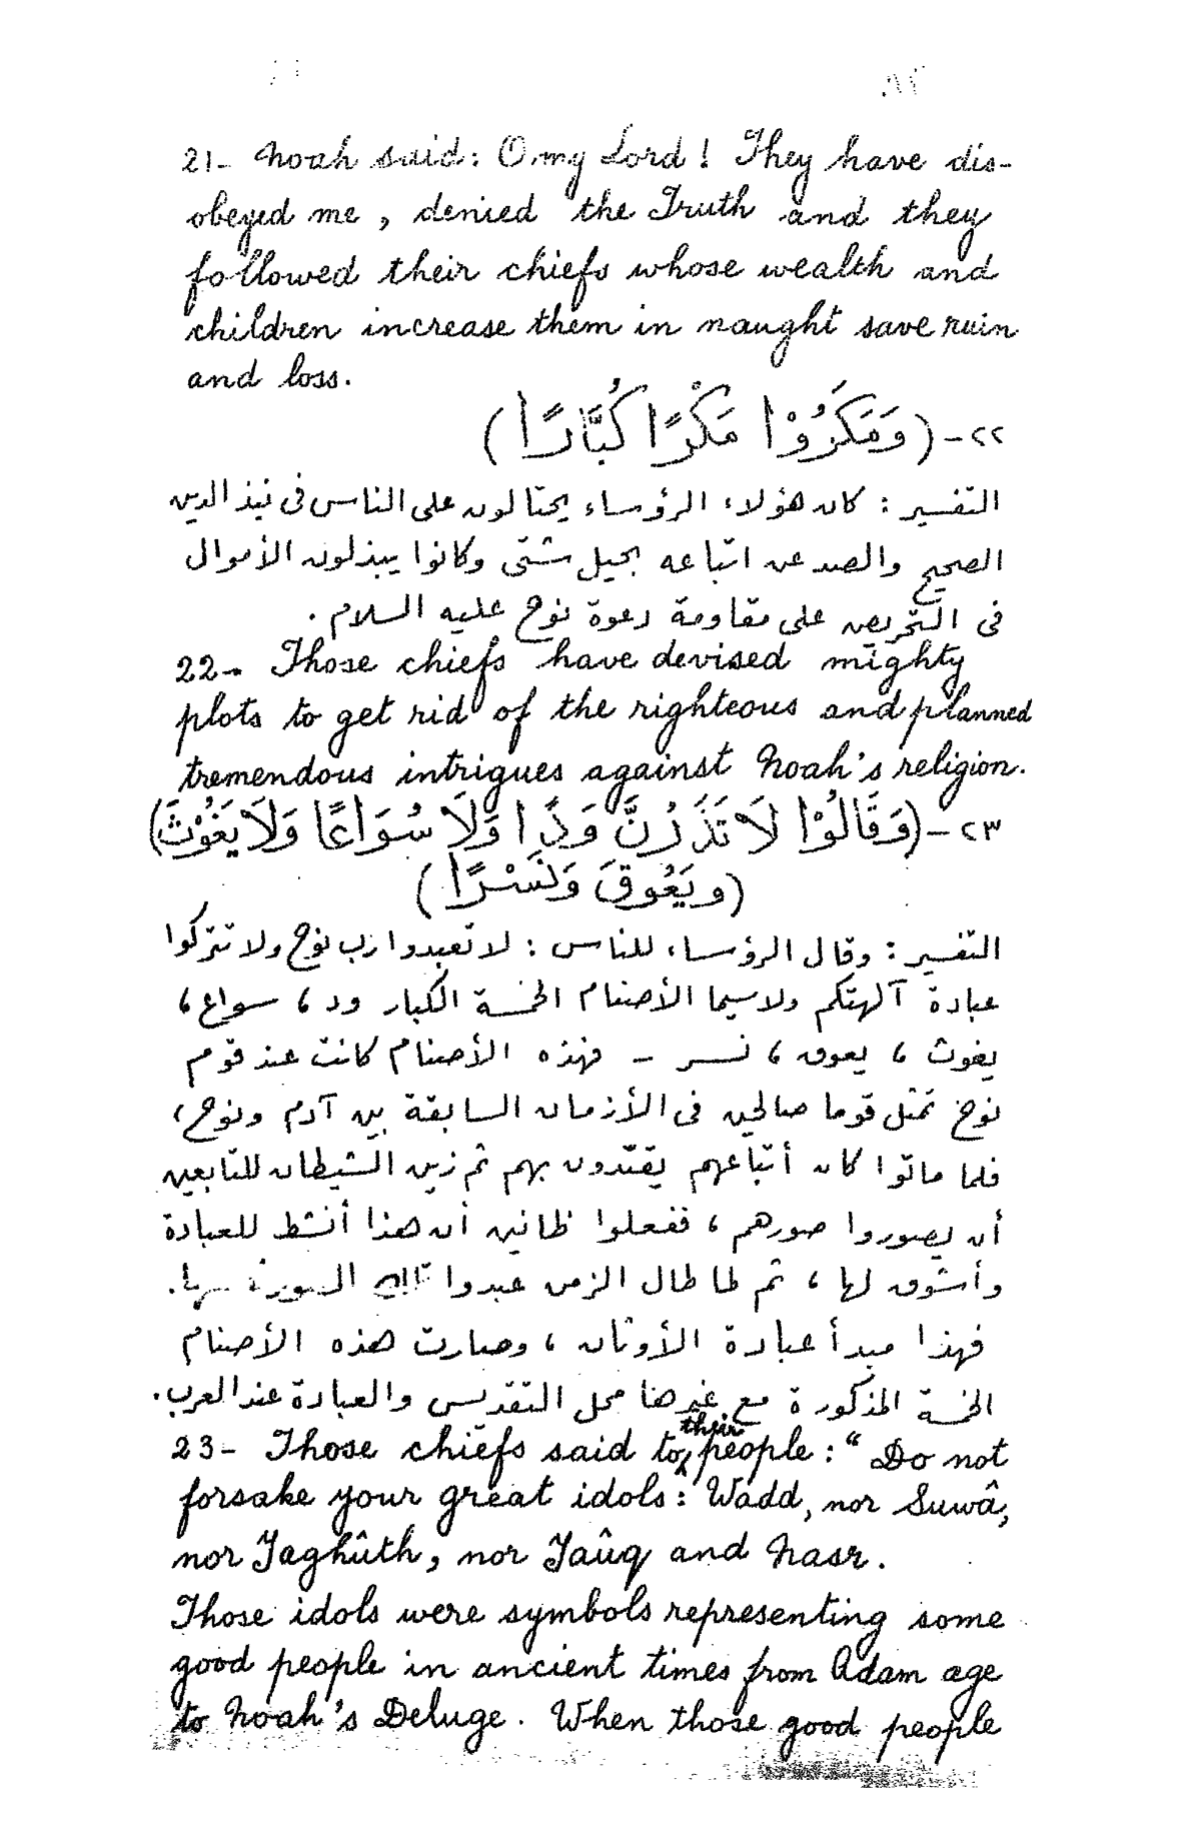 21- Noah said: O, my Lord! They have dis-
obeyed me, denied the Truth and they
followed their chiefs whose wealth and
children increase them in naught save ruin
and loss.
٢٢- (وَمَكَرُوْا مَكْرًا كُبَّارًا)
التفسير : كان هؤلاء الرؤساء يحتالون على الناس فى نبذ الدين
الصحيح والصد عن اتباعه بحيل شتى وكانوا يبذلون الأموال
فى التحريض على مقاومة دعوة نوح عليه السلام .
22- Those chiefs have devised mighty
plots to get rid of the righteous and planned
tremendous intrigues against Noah's religion.
٢٣- (وَقَالُوْا لَا تَذَرُنَّ وَدًّا وَلَا سُوَاعًا وَلَا يَغُوْثَ)
(ويَعُوقَ وَنَسْرًا)
التفسير : وقال الرؤساء للناس : لا تعبدوا رب نوح ولا تتركوا
عبادة آلهتكم ولاسيما الأصنام الخمسة الكبار ود ، سواع ،
يغوث ، يعوق ، نسر - فهذه الأصنام كانت عند قوم
نوح تمثل قوما صالحين فى الأزمان السابقة بين آدم ونوح ،
فلما ماتوا كان أتباعهم يقتدون بهم ثم زين الشيطان للتابعين
أن يصوروا صورهم ، ففعلوا ظانين أن هذا أنشط للعبادة
وأشوق لها ، ثم لما طال الزمن عبدوا تلك الصورة
فهذا مبدأ عبادة الأوثان ، وصارت هذه الأصنام
الخمسة المذكورة مع غيرها محل التقديس والعبادة عند العرب .
23- Those chiefs said to their people: "Do not
forsake your great idols: Wadd, nor Suwâ,
nor Yaghûth, nor Yaûq and Nasr.
Those idols were symbols representing some
good people in ancient times from Adam age
to Noah's Deluge. When those good people